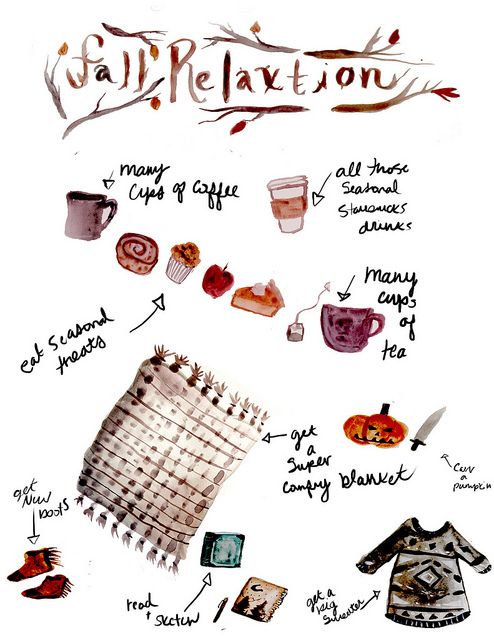 Fall Relaxtion
many
cups of coffee
all those
seasonal
Starbucks
drinks
many
cups
of
tea
eat seasonal
treats
get
a
super
comfy blanket
a
pumpkin
get
new
boots
read
+
get a
big